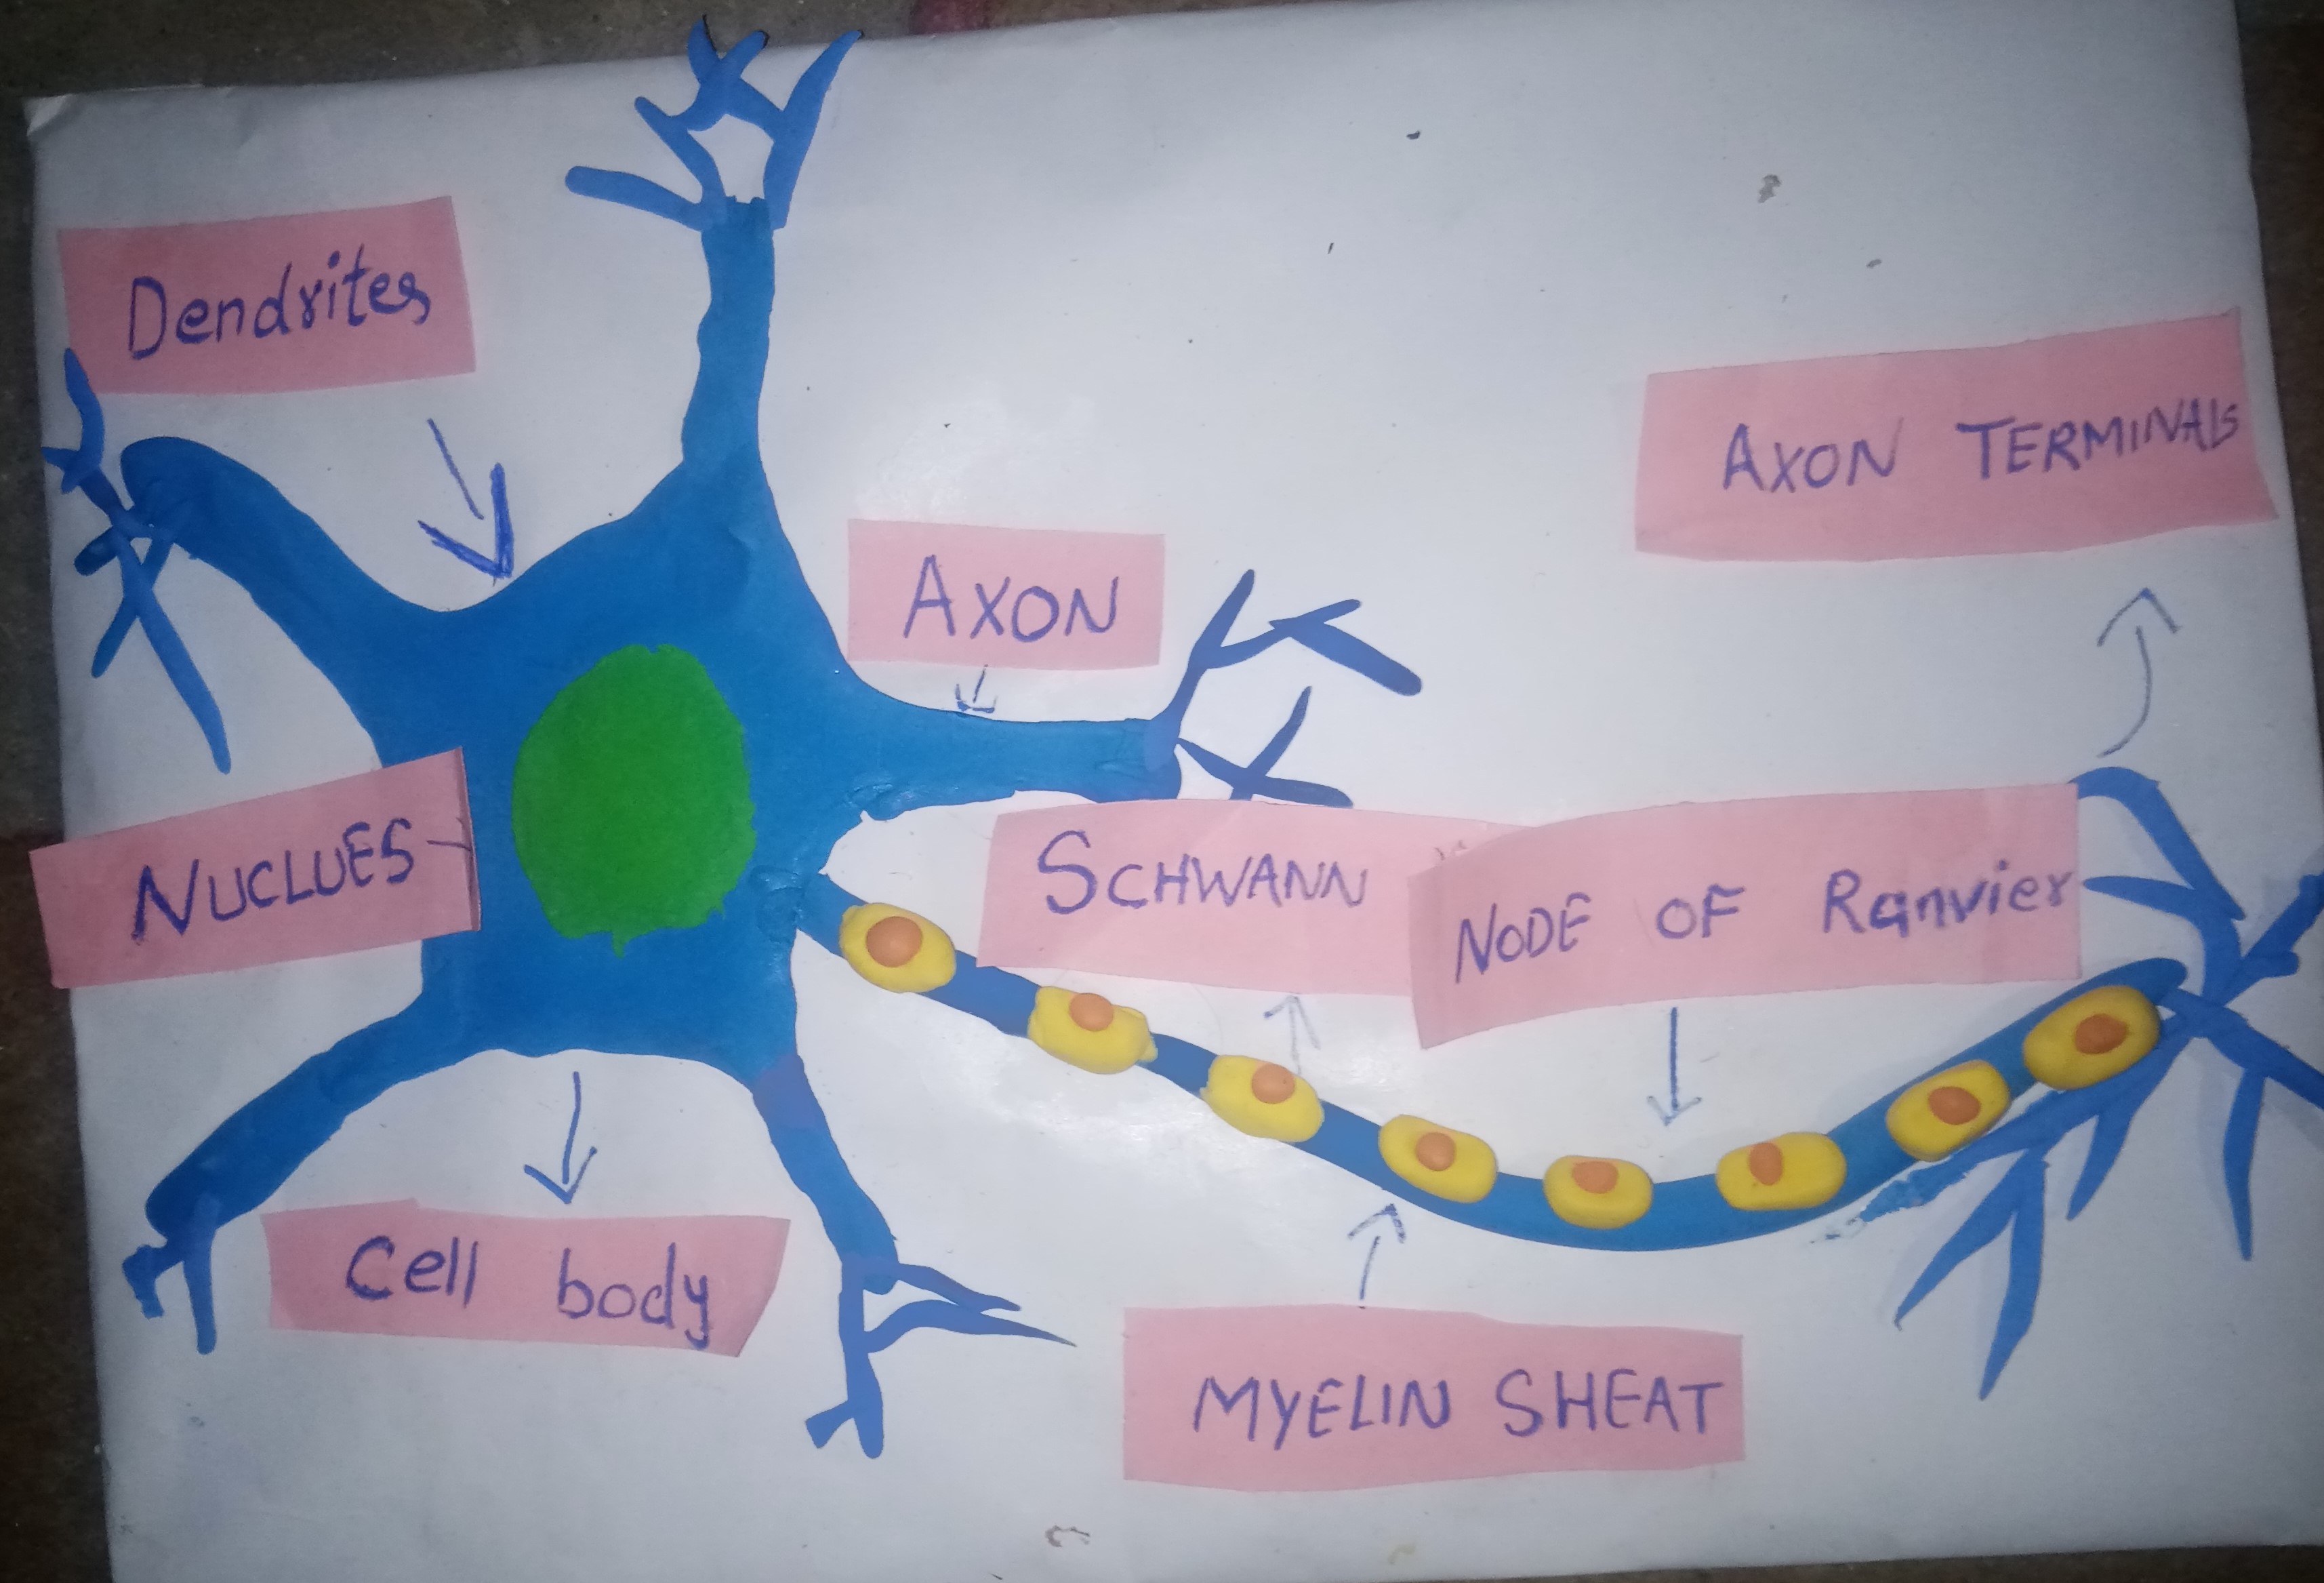 Dendrites
AXON TERMINALS
AXON
NUCLUES
SCHWANN
NODE OF Ranvier
Cell body
MYELIN SHEAT